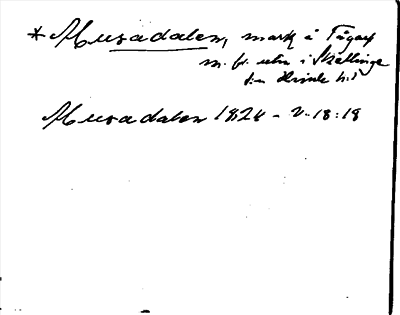 * Musadalen, mark å Fågat
m. fl. utm i Skällinge
s:n Himle h:d
Musadalen 1824 - V-18:18